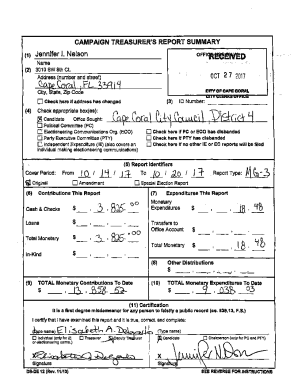 CAMPAIGN TREASURER'S REPORT SUMMARY
(1) Jennifer I. Nelson
Name
(2)
Address (number and street)
Cape Coral, FL 33914
City, State, Zip Code
Check here if address has changed
RECEIVED
OCT 27 2017
CITY OF CAPE CORAL
(3) ID Number:
(4) Check appropriate box(es):
Candidate Office Sought: Cape Coral City Council District 4
Political Committee (PC)
Electioneering Communications Org. (ECO)
Party Executive Committee (PTY)
Independent Expenditure (IE) (also covers an individual making electioneering communications)
Check here if PC or ECO has disbanded
Check here if PTY has disbanded
Check here if no other IE or EC reports will be filed
(5) Report Identifiers
Cover Period: From 10 / 14 / 17 To 10 / 20 / 17 Report Type: MG-3
Original Amendment Special Election Report
(6) Contributions This Report
Cash & Checks $ 3, 825.00
Loans $
Total Monetary $ 3, 825.00
In-Kind $
(7) Expenditures This Report
Monetary Expenditures $ 18.48
Transfers to Office Account $
Total Monetary $ 18.48
(8) Other Distributions
$
(9) TOTAL Monetary Contributions To Date
$ 13, 858.52
(10) TOTAL Monetary Expenditures To Date
$ 9, 038.03
(11) Certification
It is a first degree misdemeanor for any person to falsify a public record (ss. 839.13, F.S.)
I certify that I have examined this report and it is true, correct, and complete:
(Type name) Elizabeth A.
Individual (only for IE or electioneering comm.) Treasurer Deputy Treasurer
X
Signature
(Type name)
Candidate Chairperson (only for PC and PTY)
X
Signature
DS-DE 12 (Rev. 11/13)
SEE REVERSE FOR INSTRUCTIONS